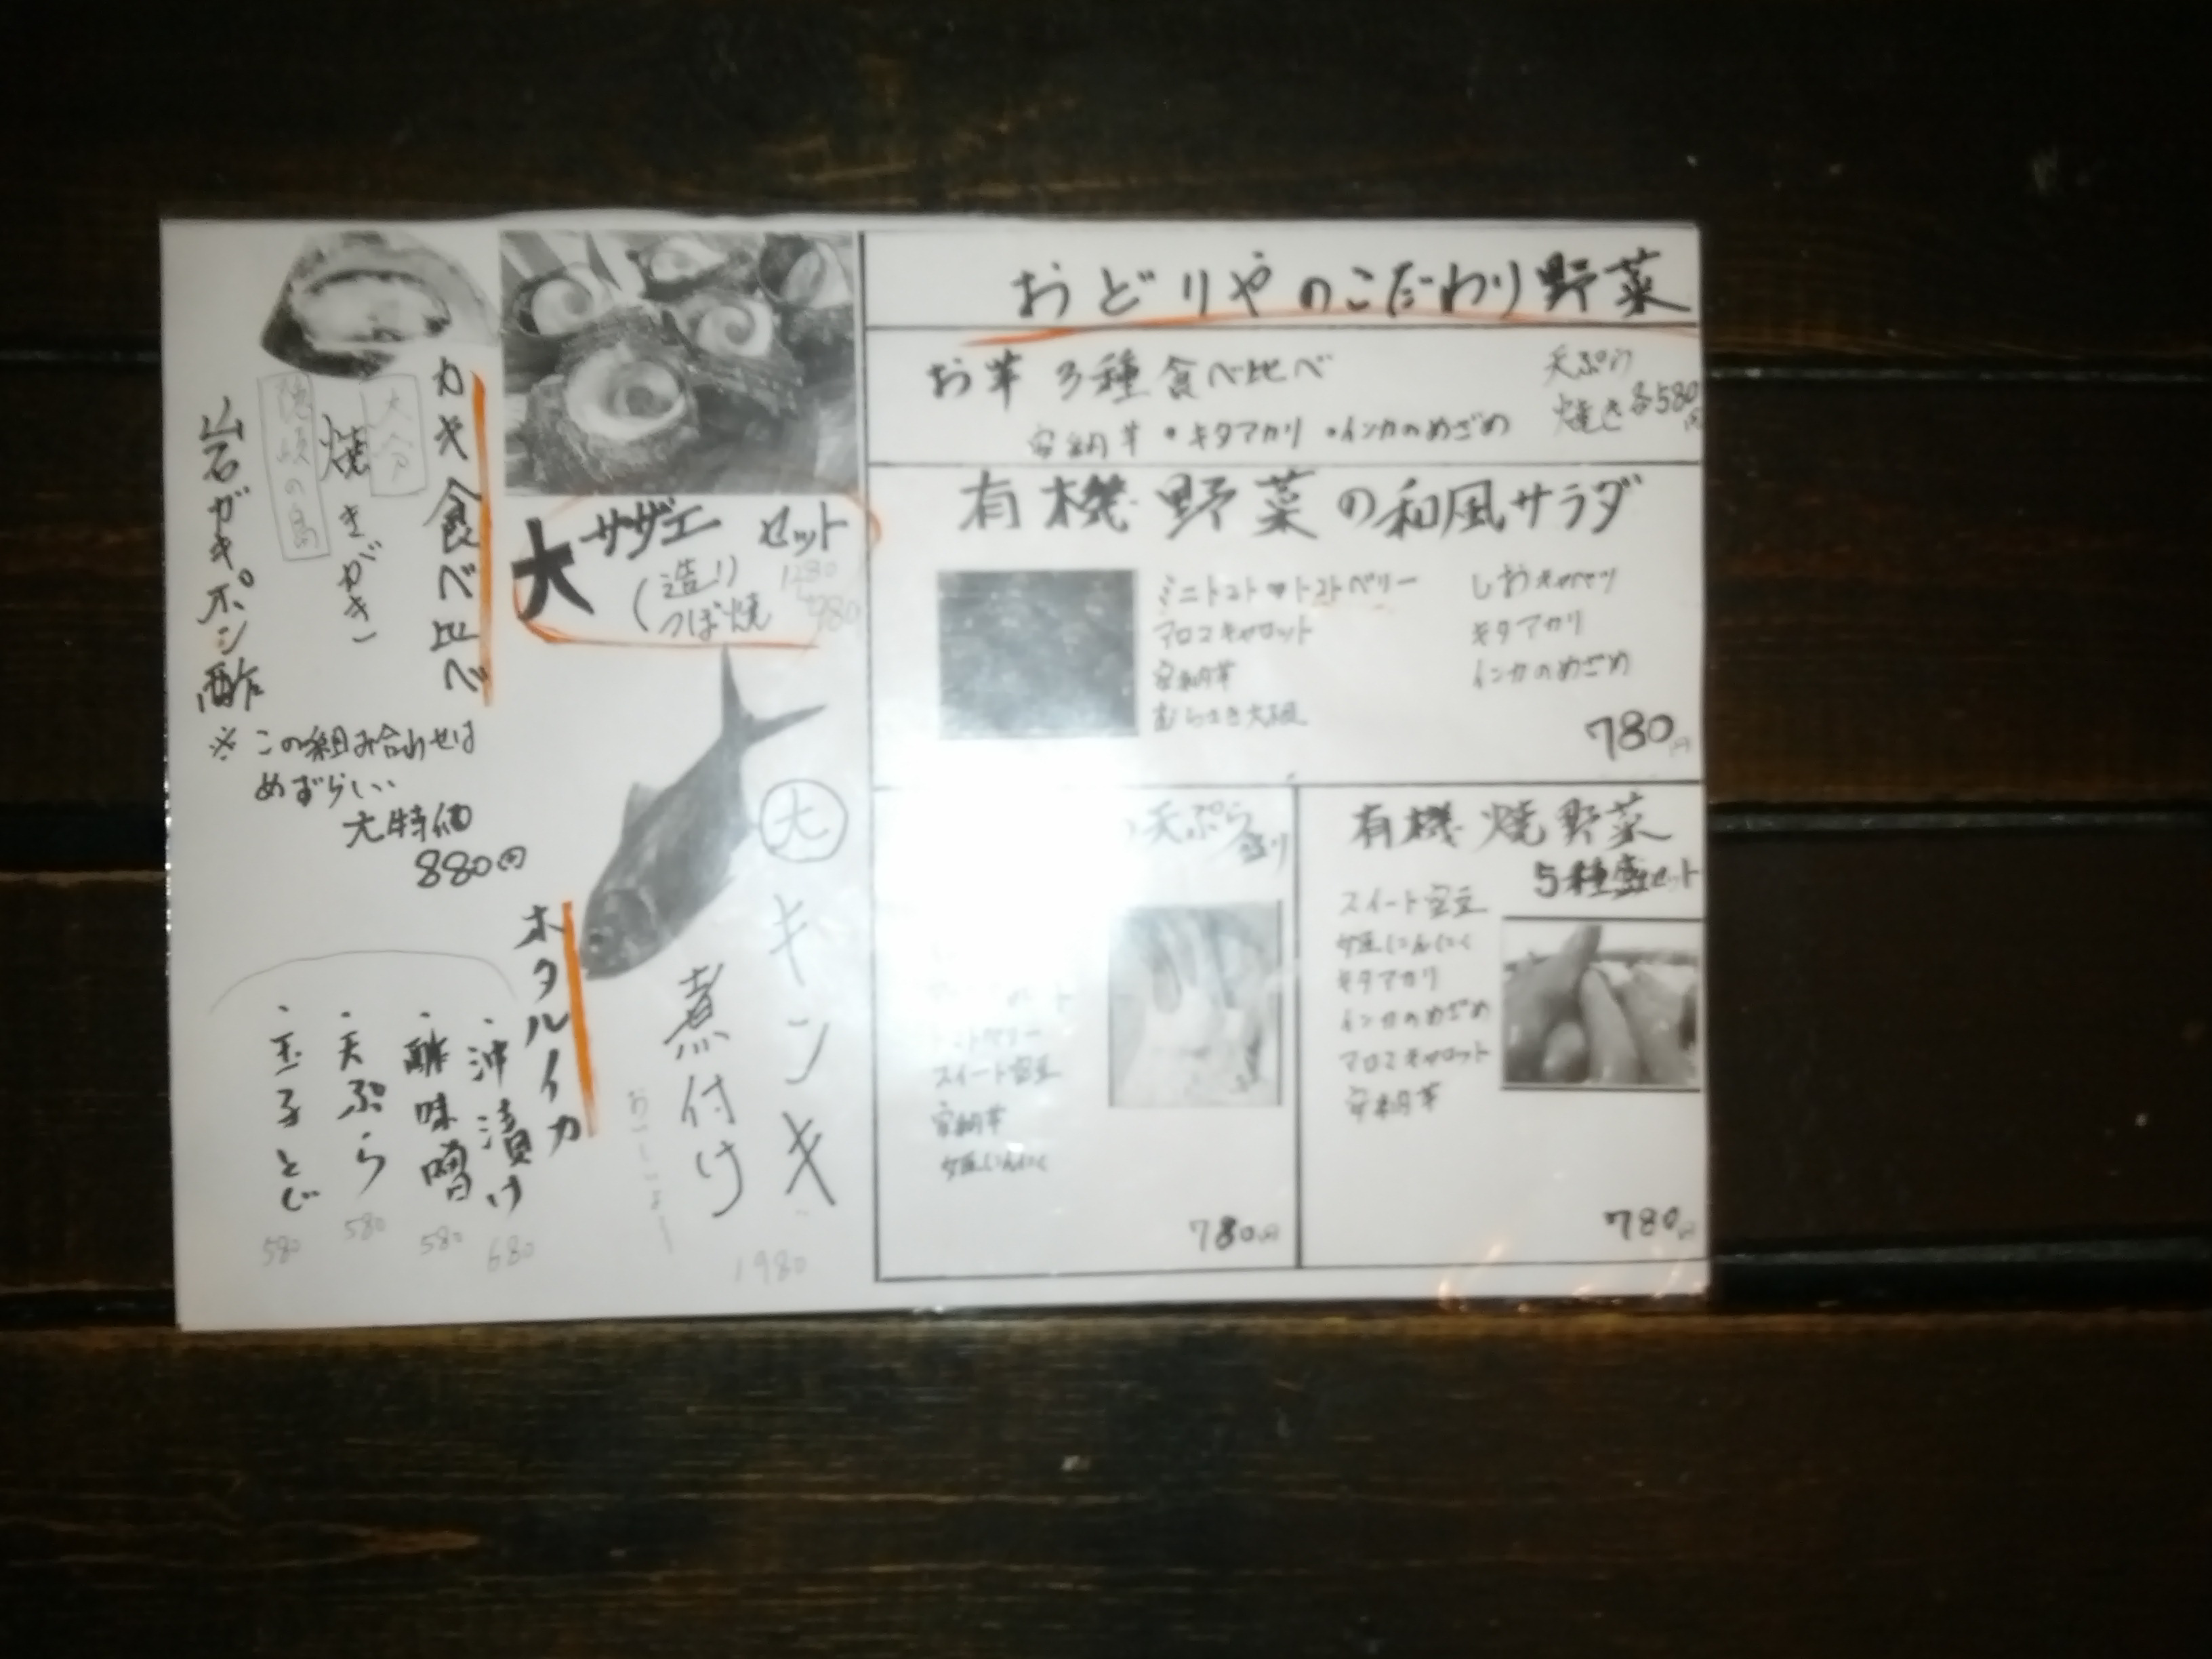 カキ食べ比べ
大分
焼きがき
隠岐の島
岩ガキポン酢
※この組み合わせは
めずらしい
大特価
880円
大サザエ セット
(造り 1280
つぼ焼 980
大
キンキ
煮付け
1980
ホタルイカ
・沖漬け 680
・酢味噌 580
・天ぷら 580
・玉子とじ 580
おどりやのこだわり野菜
お芋 3種 食べ比べ
天ぷら
焼き 各580円
安納芋・キタアカリ・インカのめざめ
有機野菜の和風サラダ
ミニトマト♥トマトベリー
アロマキャロット
安納芋
むらさき大根
しおキャベツ
キタアカリ
インカのめざめ
780円
天ぷら
盛り
スイート空豆
安納芋
780円
有機焼野菜
5種盛セット
スイート空豆
にんにく
キタアカリ
インカのめざめ
アロマキャロット
安納芋
780円